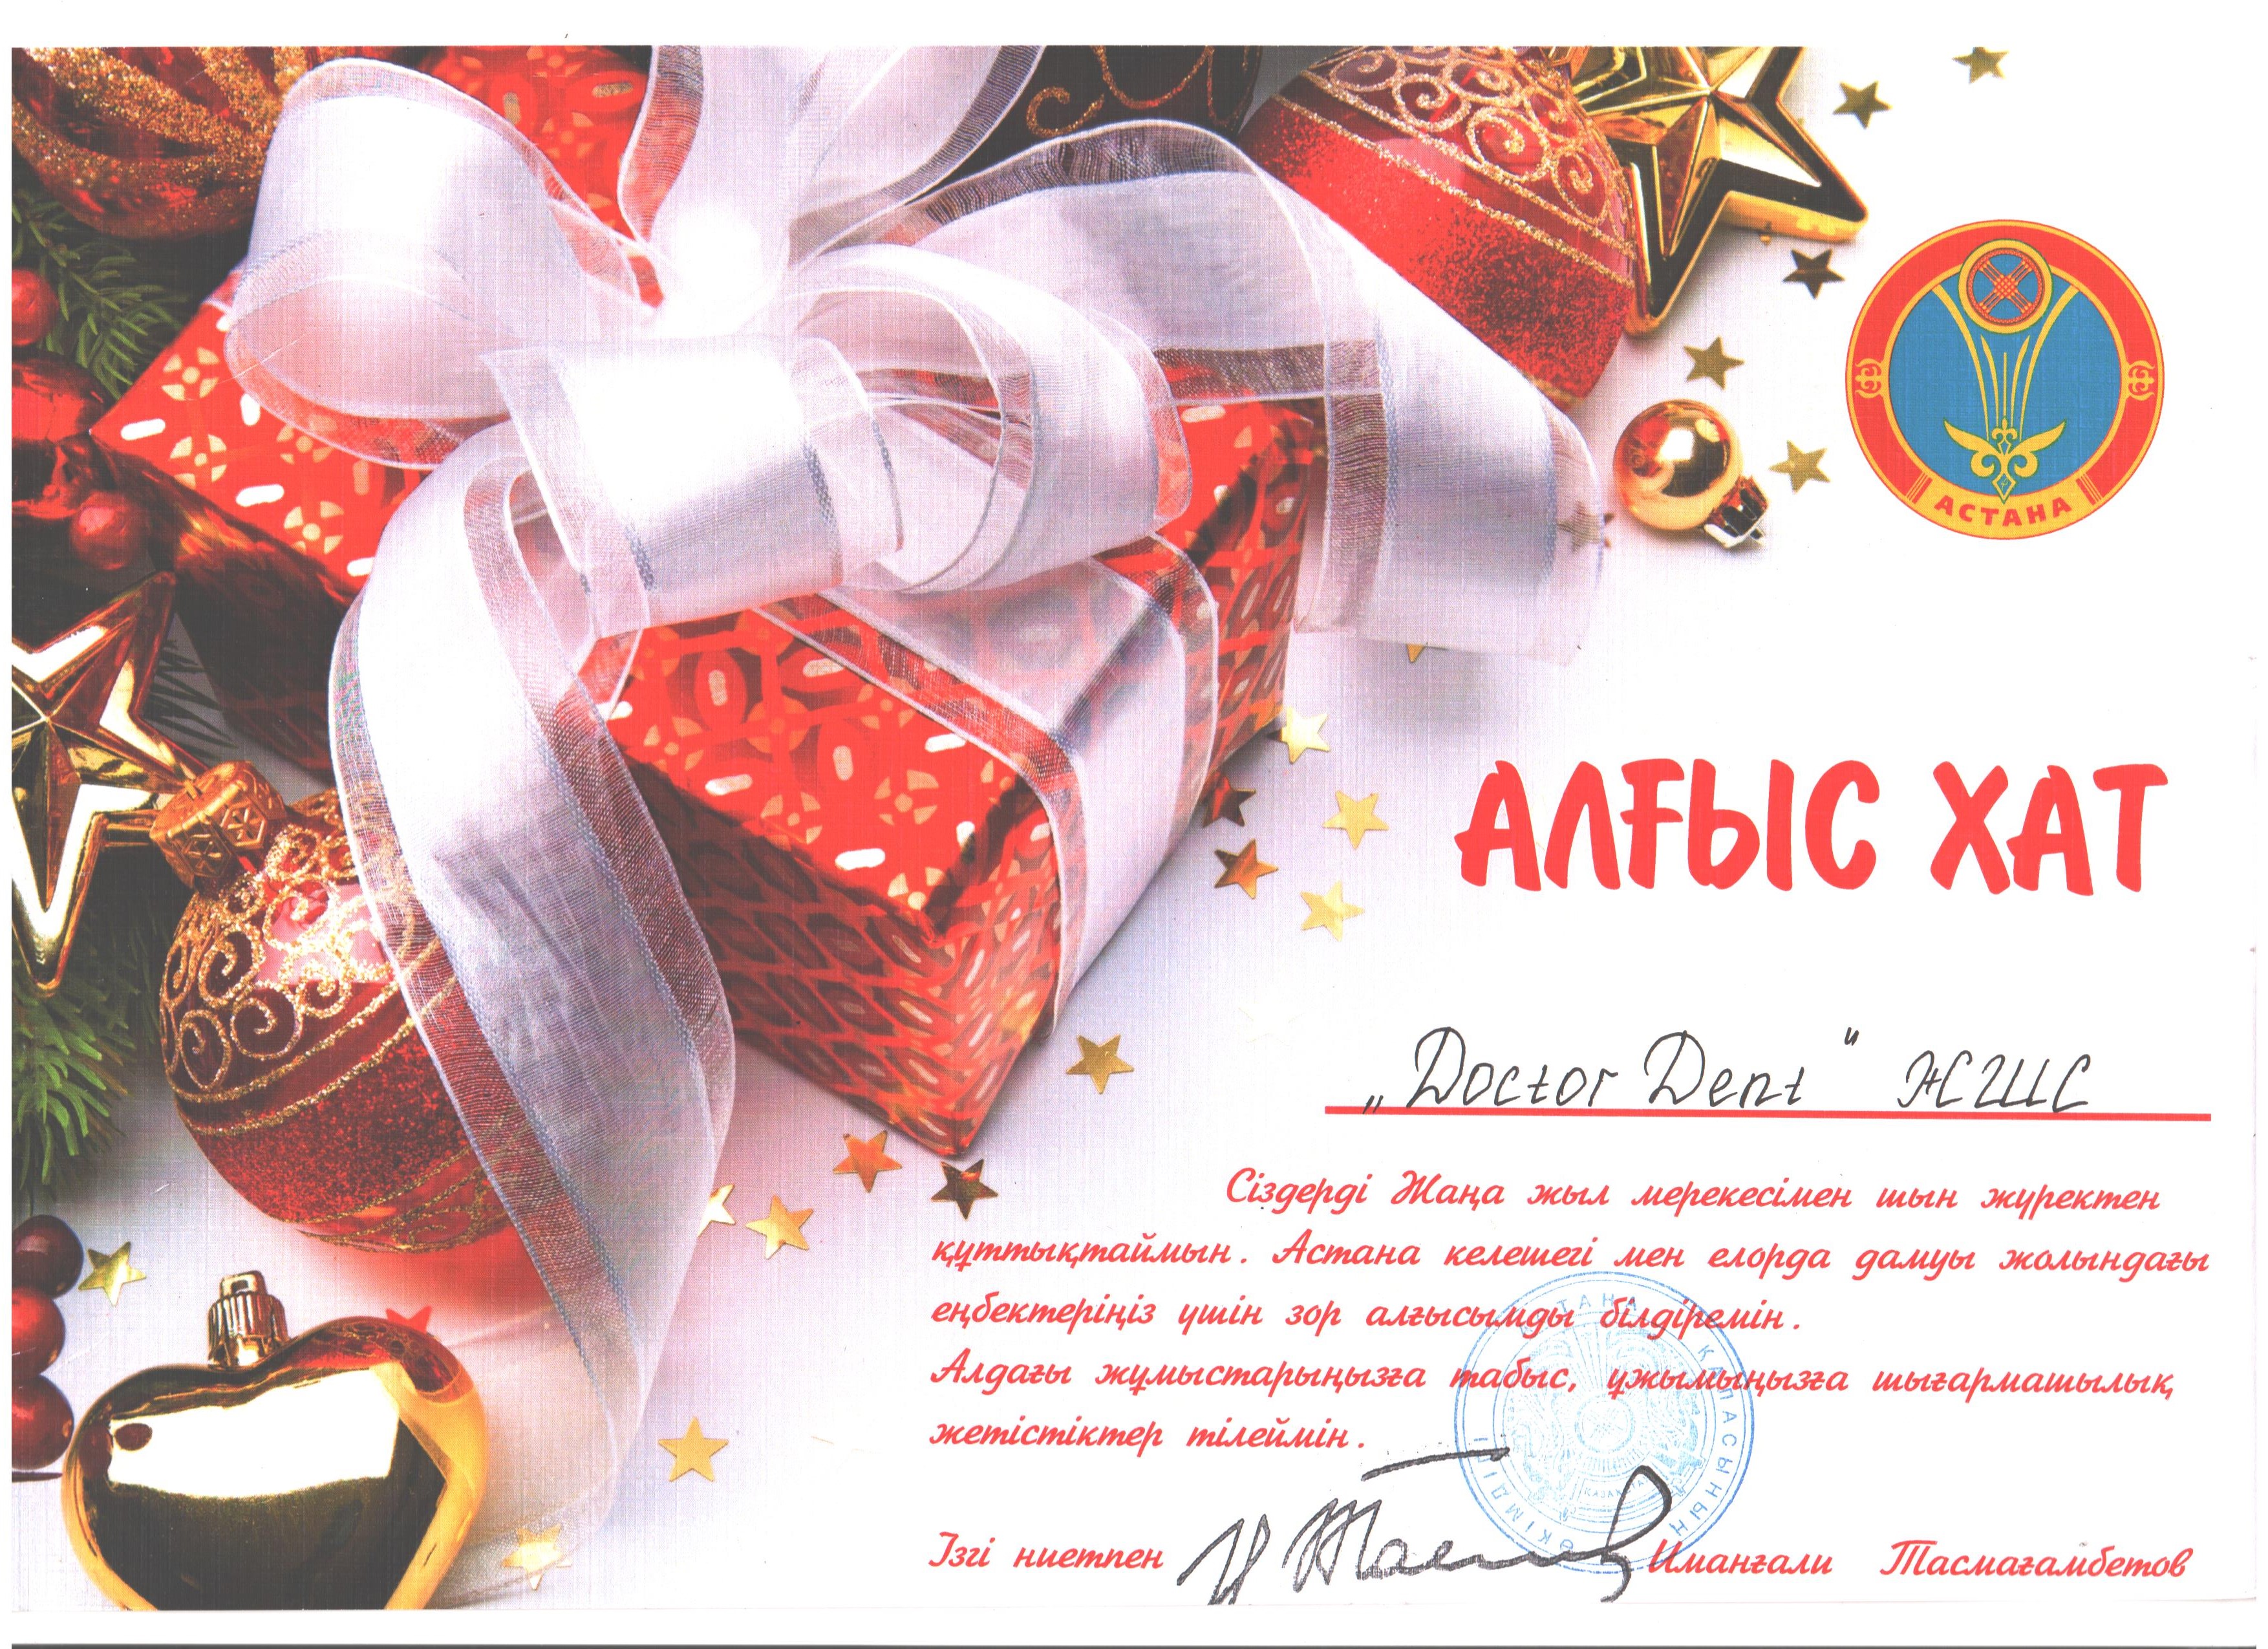 АСТАНА
АЛҒЫС ХАТ
„Doctor Dent" ЖШС
Сіздерді Жаңа жыл мерекесімен шын жүректен
құттықтаймын. Астана келешегі мен елорда дамуы жолындағы
еңбектеріңіз үшін зор алғысымды білдіремін.
Алдағы жұмыстарыңызға табыс, ұжымыңызға шығармашылық
жетістіктер тілеймін.
АСТАНА ҚАЛАСЫНЫҢ ӘКІМДІГІ
Ізгі ниетпен
Иманғали Тасмағамбетов